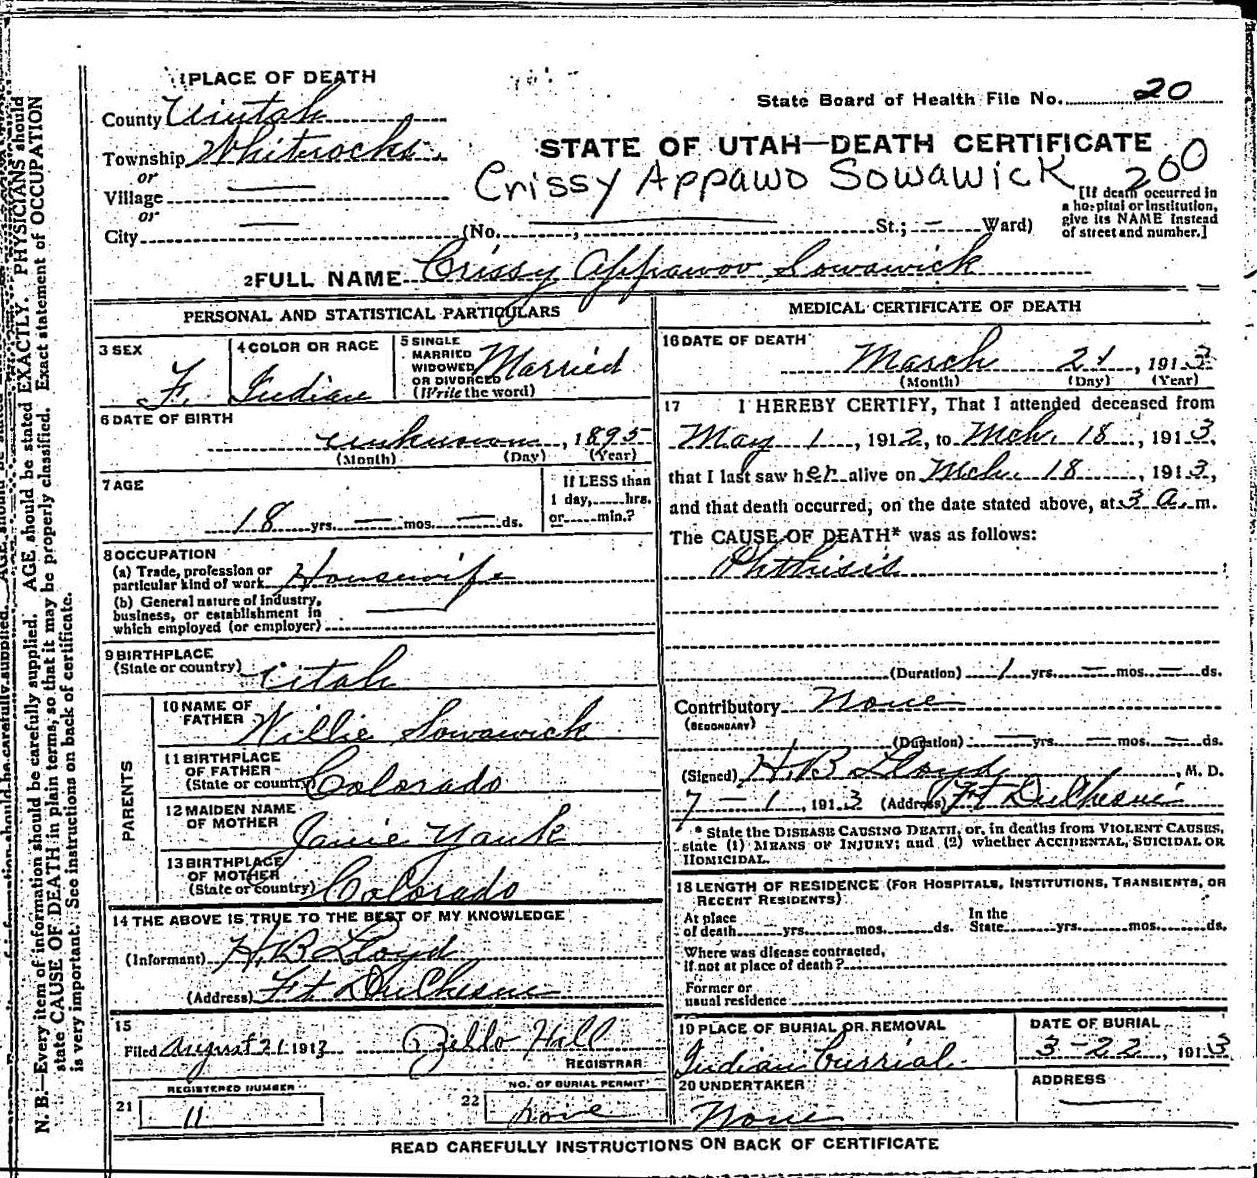 1 PLACE OF DEATH
County Uintah
Township Whiterocks
or
Village —
or
City —
State Board of Health File No. 20
STATE OF UTAH—DEATH CERTIFICATE
Crissy Appawo Sowawick 200
[If death occurred in
a hospital or institution,
give its NAME instead
of street and number.]
(No. , St.; — Ward)
2 FULL NAME Crissy Appawoo Sowawick
PERSONAL AND STATISTICAL PARTICULARS
3 SEX
F.
4 COLOR OR RACE
Indian
5 SINGLE
MARRIED
WIDOWED
OR DIVORCED
(Write the word)
Married
6 DATE OF BIRTH
unknown, 1895
(Month) (Day) (Year)
7 AGE
18 yrs. — mos. — ds.
If LESS than
1 day, hrs.
or min.?
8 OCCUPATION
(a) Trade, profession or
particular kind of work Housewife
(b) General nature of industry,
business, or establishment in
which employed (or employer) —
9 BIRTHPLACE
(State or country) Utah
PARENTS
10 NAME OF
FATHER Willie Sowawick
11 BIRTHPLACE
OF FATHER
(State or country) Colorado
12 MAIDEN NAME
OF MOTHER Janie Yank
13 BIRTHPLACE
OF MOTHER
(State or country) Colorado
14 THE ABOVE IS TRUE TO THE BEST OF MY KNOWLEDGE
(Informant) H.B Lloyd
(Address) Ft DuChesne
15
Filed August 21 1913 Zello Hill
REGISTRAR
REGISTERED NUMBER
21 11
NO. OF BURIAL PERMIT
22 none
MEDICAL CERTIFICATE OF DEATH
16 DATE OF DEATH
March 21, 1913
(Month) (Day) (Year)
17 I HEREBY CERTIFY, That I attended deceased from
May 1, 1912, to Mch. 18, 1913,
that I last saw her alive on Mch. 18, 1913,
and that death occurred, on the date stated above, at 3 a. m.
The CAUSE OF DEATH* was as follows:
Phthisis
(Duration) 1 yrs. — mos. — ds.
Contributory None
(SECONDARY)
(Duration) — yrs. — mos. — ds.
(Signed) H.B Lloyd, M. D.
7 – 1, 1913 (Address) Ft DuChesne
* State the DISEASE CAUSING DEATH, or, in deaths from VIOLENT CAUSES,
state (1) MEANS OF INJURY; and (2) whether ACCIDENTAL, SUICIDAL OR
HOMICIDAL.
18 LENGTH OF RESIDENCE (FOR HOSPITALS, INSTITUTIONS, TRANSIENTS, OR
RECENT RESIDENTS)
At place
of death yrs. mos. ds.
In the
State yrs. mos. ds.
Where was disease contracted,
if not at place of death?
Former or
usual residence
19 PLACE OF BURIAL OR REMOVAL
Indian Burrial
DATE OF BURIAL
3-22, 1913
20 UNDERTAKER
None
ADDRESS
—
READ CAREFULLY INSTRUCTIONS ON BACK OF CERTIFICATE
N. B.—Every item of information should be carefully supplied. AGE should be stated EXACTLY. PHYSICIANS should
state CAUSE OF DEATH in plain terms, so that it may be properly classified. Exact statement of OCCUPATION
is very important. See instructions on back of certificate.